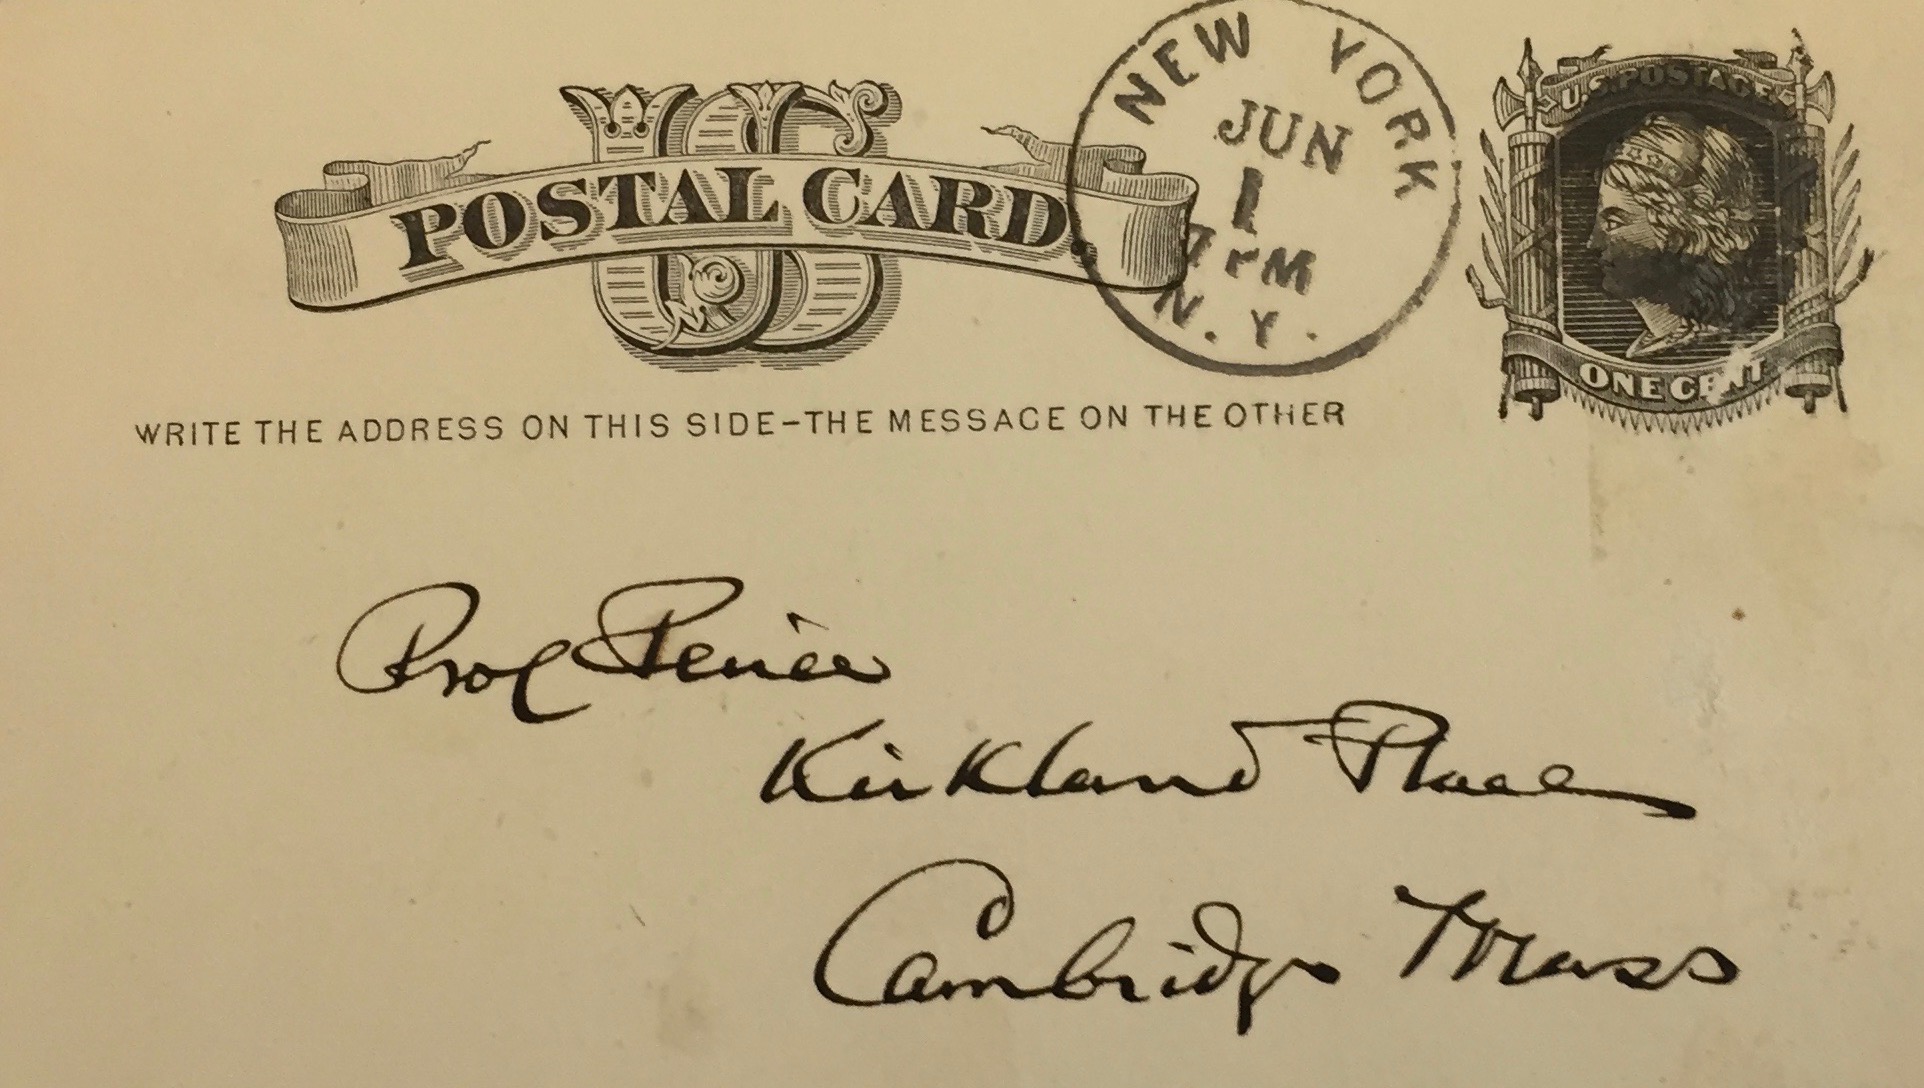 US
POSTAL CARD.
NEW YORK
JUN
1
7 PM
N.Y.
U.S. POSTAGE
ONE CENT
WRITE THE ADDRESS ON THIS SIDE-THE MESSAGE ON THE OTHER
Prof Peirce
Kirkland Place
Cambridge Mass